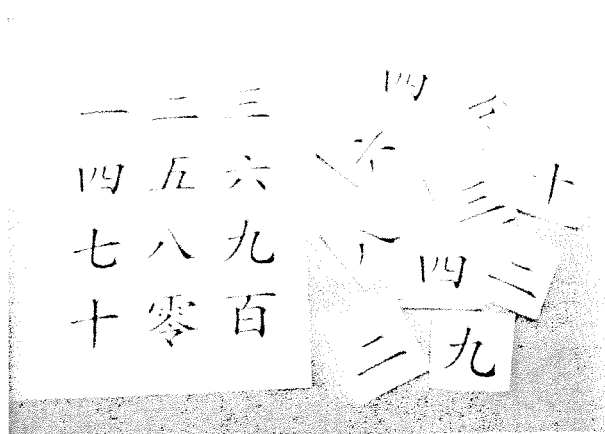 一 二 三
四 五 六
七 八 九
十 零 百
四
十
三
四 二
二 九